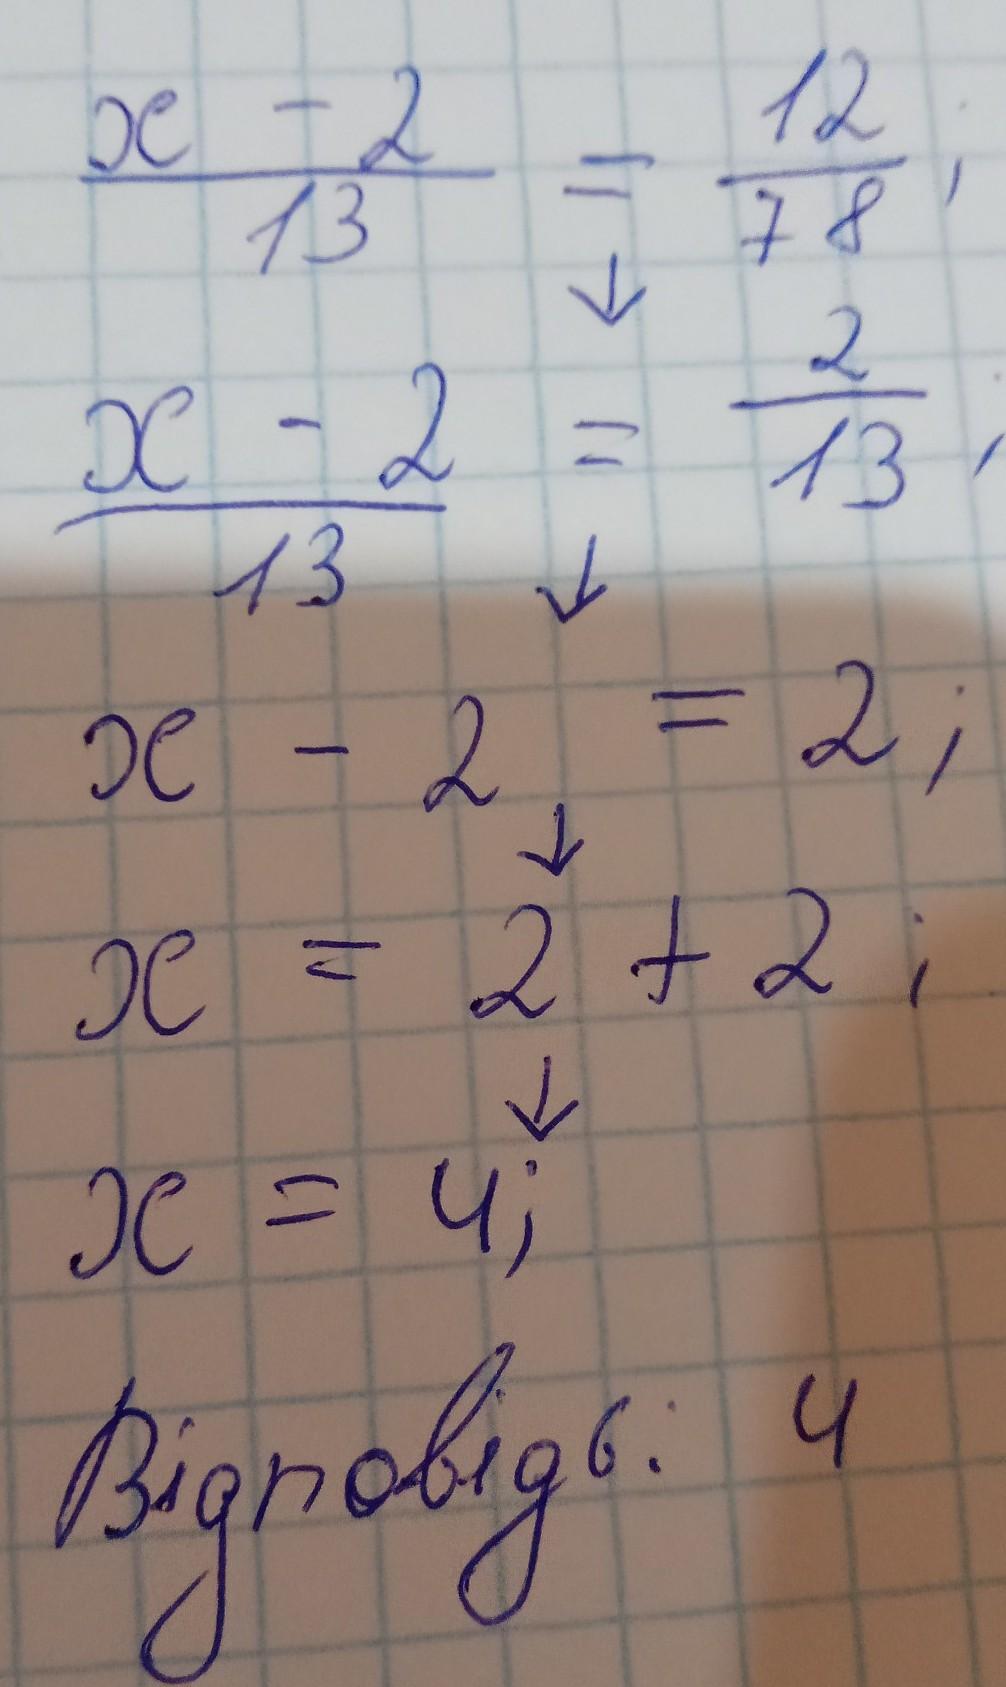 x - 2 / 13 = 12 / 78 ;
↓
x - 2 / 13 = 2 / 13 ;
↓
x - 2 = 2 ;
↓
x = 2 + 2 ;
↓
x = 4;
Відповідь: 4